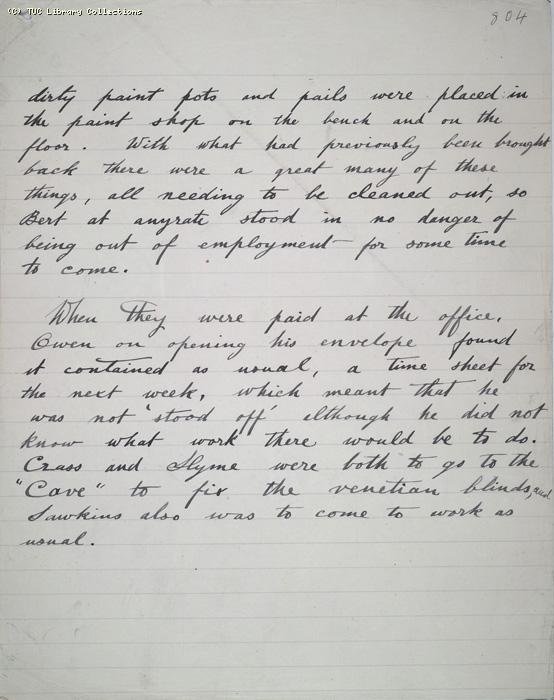 (C) TUC Library Collections
804
dirty paint pots and pails were placed in
the paint shop on the bench and on the
floor. With what had previously been brought
back there were a great many of these
things, all needing to be cleaned out, so
Bert at anyrate stood in no danger of
being out of employment for some time
to come.
When they were paid at the office,
Owen on opening his envelope found
it contained as usual, a time sheet for
the next week, which meant that he
was not 'stood off' although he did not
know what work there would be to do.
Crass and Slyme were both to go to the
"Cave" to fix the venetian blinds, and
Sawkins also was to come to work as
usual.